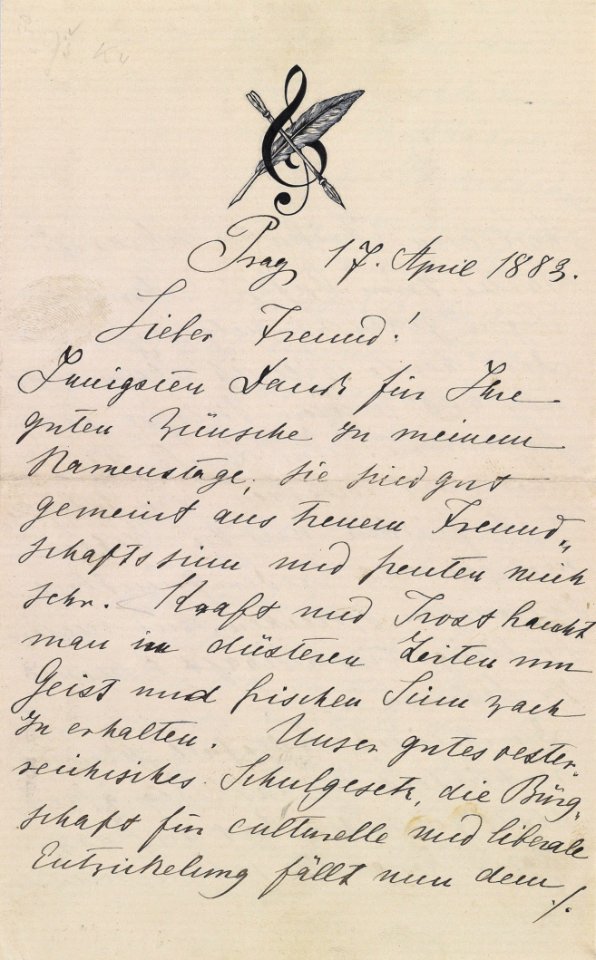 Prag 17. April 1883.
Lieber Freund!
Innigsten Dank für Ihre
guten Wünsche zu meinem
Namenstage, sie sind gut
gemeint aus treuem Freund„
schaftssinn und freuten mich
sehr. Kraft und Trost braucht
man in düsteren Zeiten um
Geist und frischen Sinn wach
zu erhalten. Unser gutes oester-
reichisches Schulgesetz, die Bürg-
schaft für culturelle und liberale
Entwickelung fällt nun dem
./.